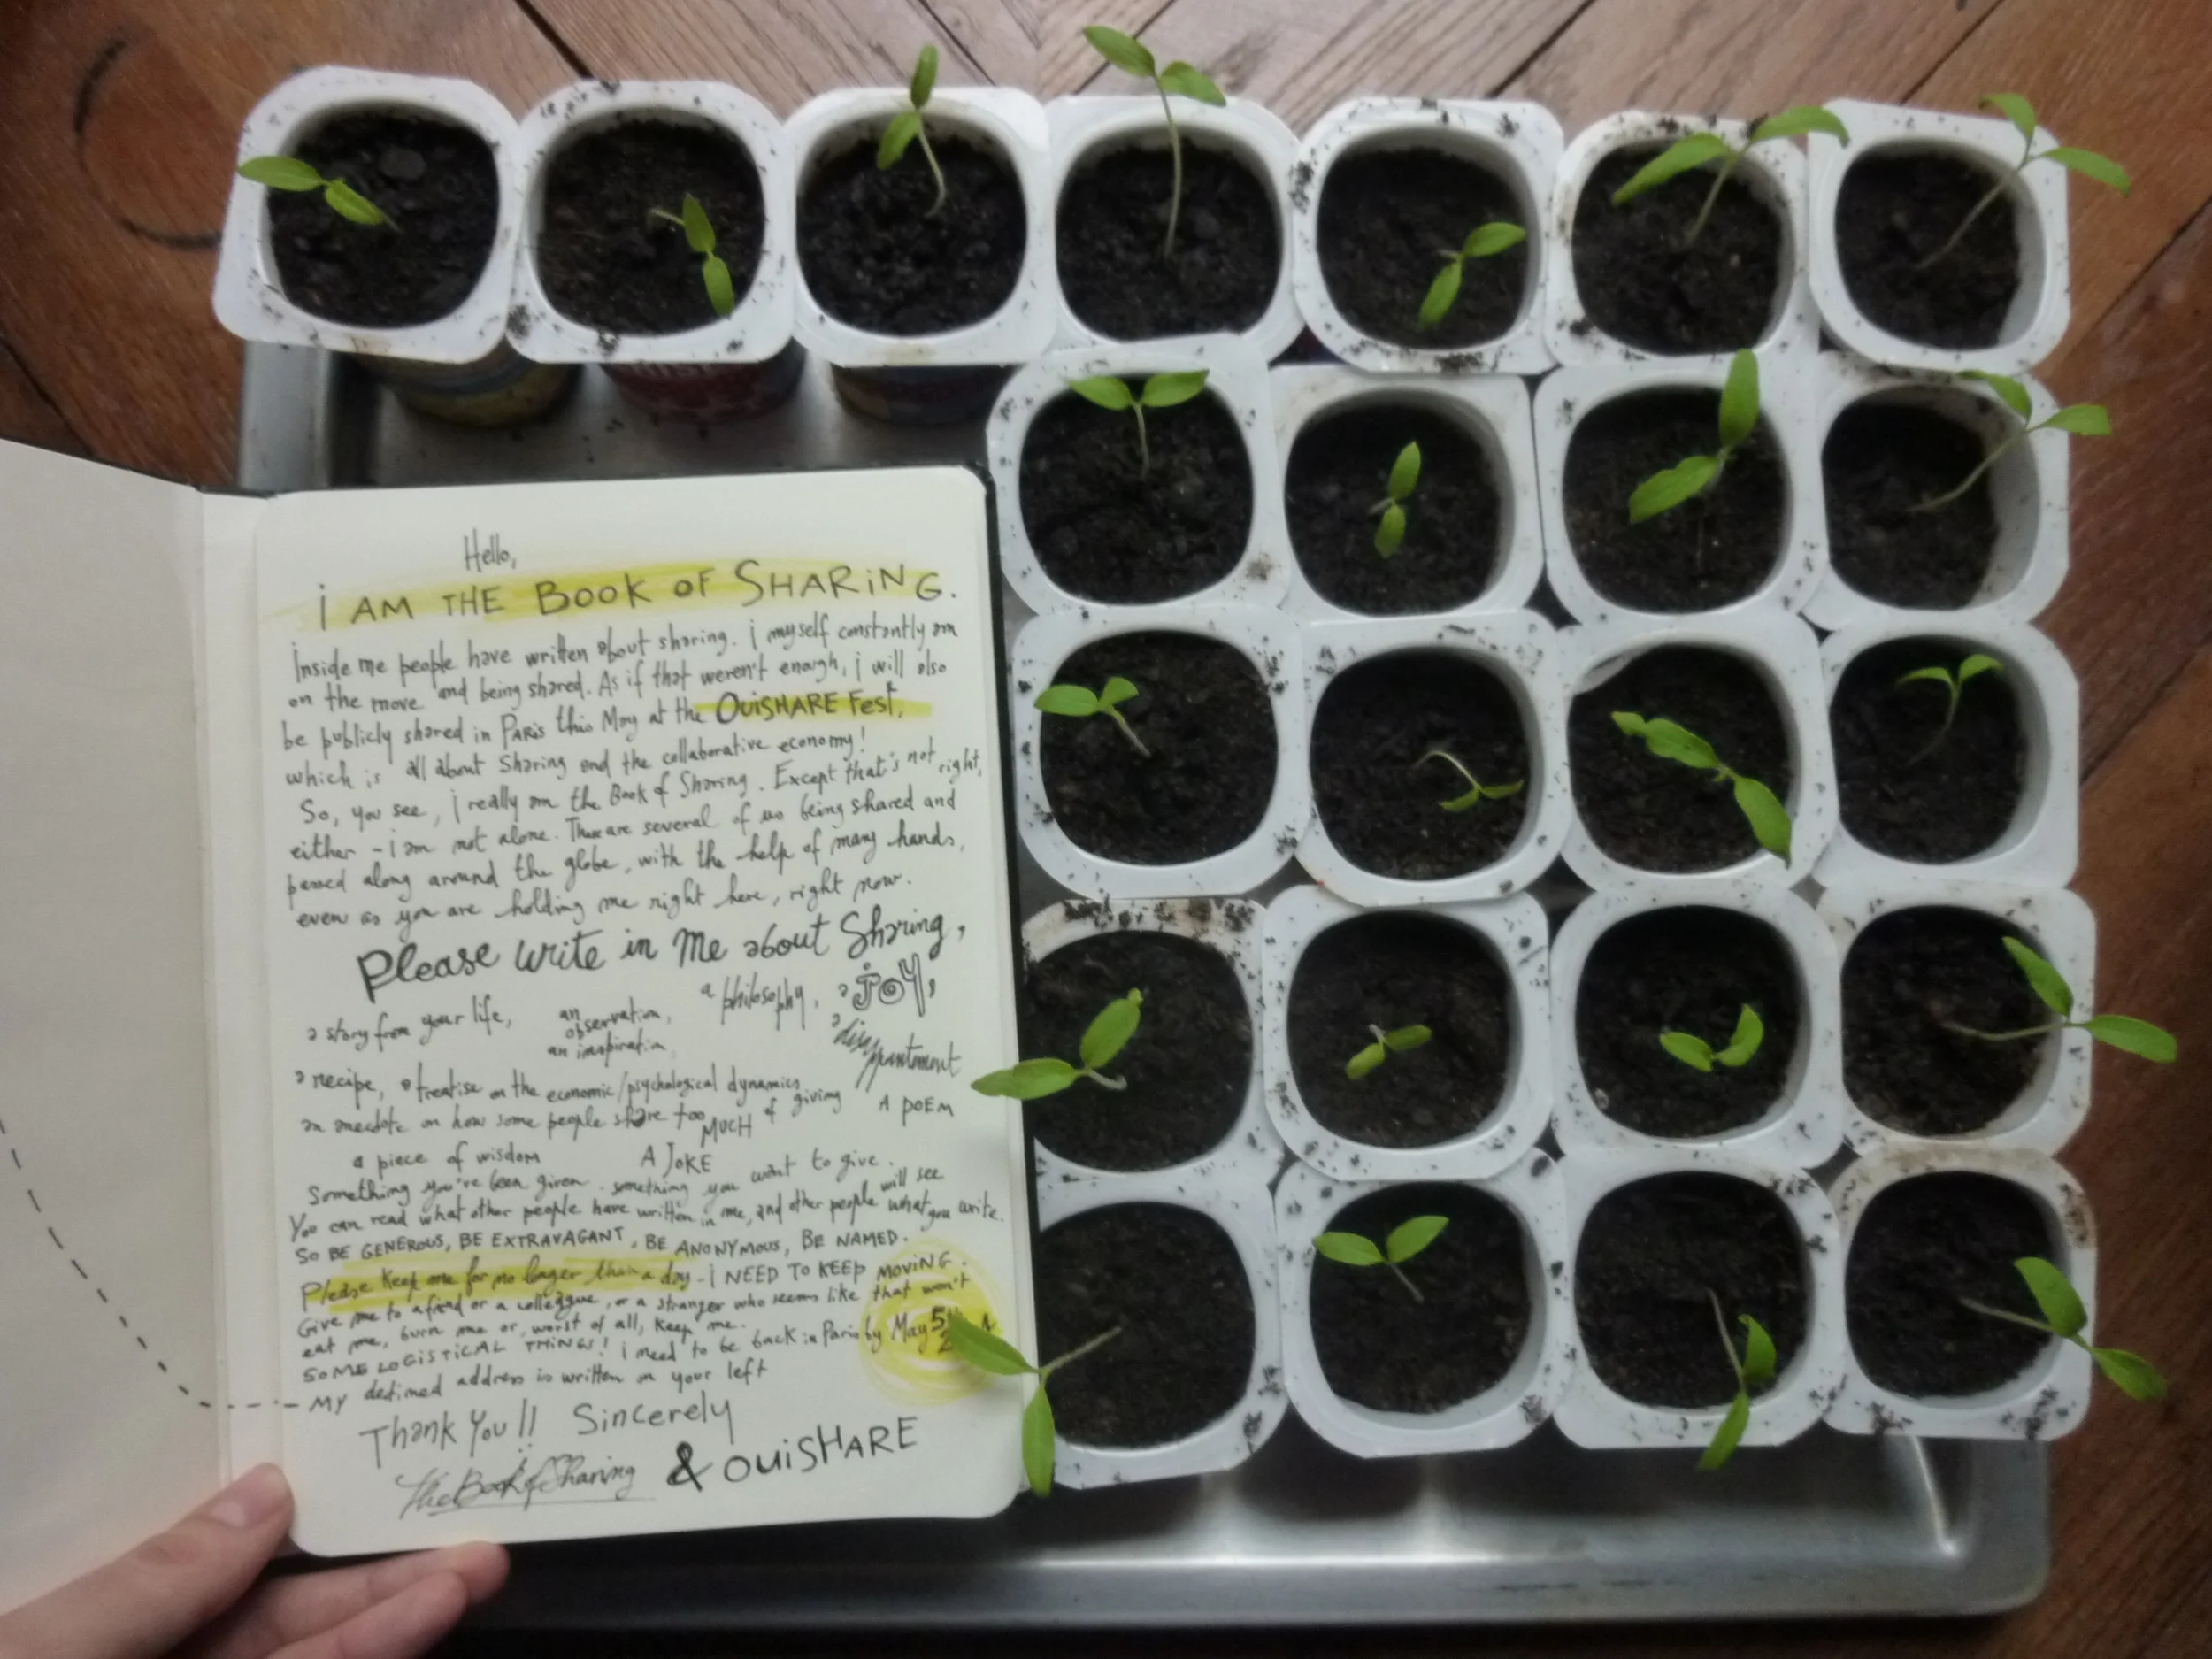 Hello,
i AM THE BOOK OF SHARiNG.
Inside me people have written about sharing. i myself constantly am
on the move and being shared. As if that weren't enough, i will also
be publicly shared in PARis this May at the OuiSHARE Fest,
which is all about Sharing and the collaborative economy!
So, you see, i really am the Book of Sharing. Except that's not right,
either - i am not alone. There are several of us being shared and
passed along around the globe, with the help of many hands,
even as you are holding me right here, right now.
Please write in me about Sharing,
a story from your life, an observation, a philosophy, a joy,
an inspiration, a disappointment
a recipe, a treatise on the economic/psychological dynamics of giving
an anecdote on how some people share too MUCH A POEM
a piece of wisdom A JOKE
Something you've been given. something you want to give.
You can read what other people have written in me, and other people will see what you write.
SO BE GENEROUS, BE EXTRAVAGANT, BE ANONYMOUS, BE NAMED.
Please Keep me for no longer than a day - i NEED TO KEEP MOViNG.
Give me to a friend or a colleague, or a stranger who seems like that won't
eat me, burn me or, worst of all, keep me.
SOME LOGiSTiCAL THiNGS! i need to be back in Paris by May 5th
My destined address is written on your left
Thank You!! Sincerely
The Book of Sharing & OuiSHARE